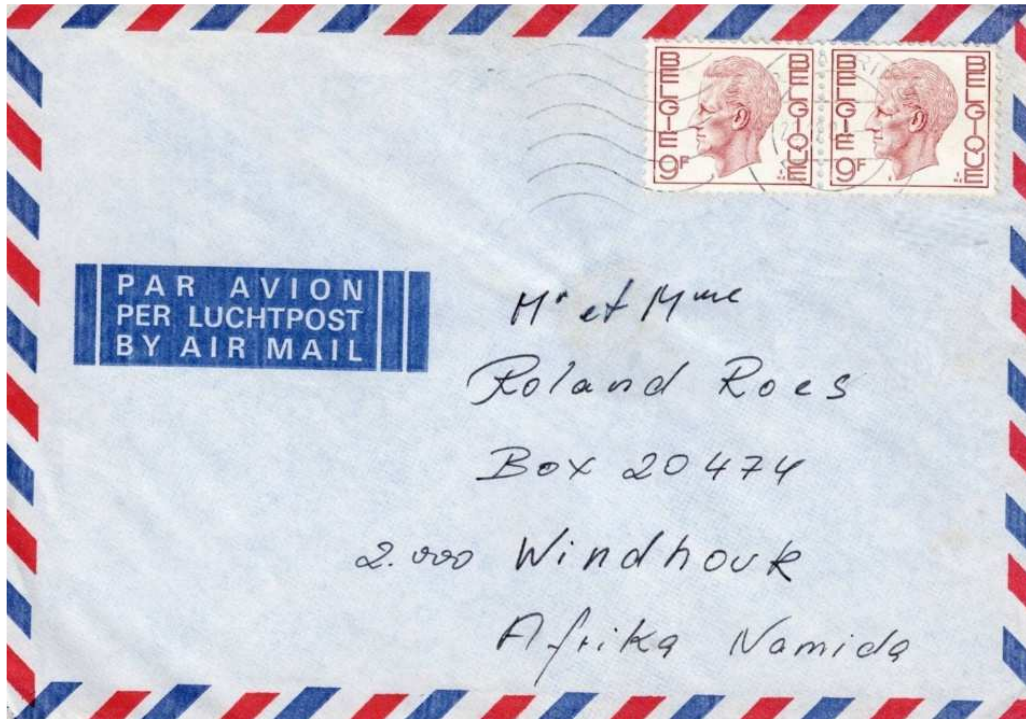 BELGIE BELGIQUE 9F
BELGIE BELGIQUE 9F
PAR AVION
PER LUCHTPOST
BY AIR MAIL
Mr et Mme
Roland Roes
Box 20474
2.000 Windhouk
Afrika Namida